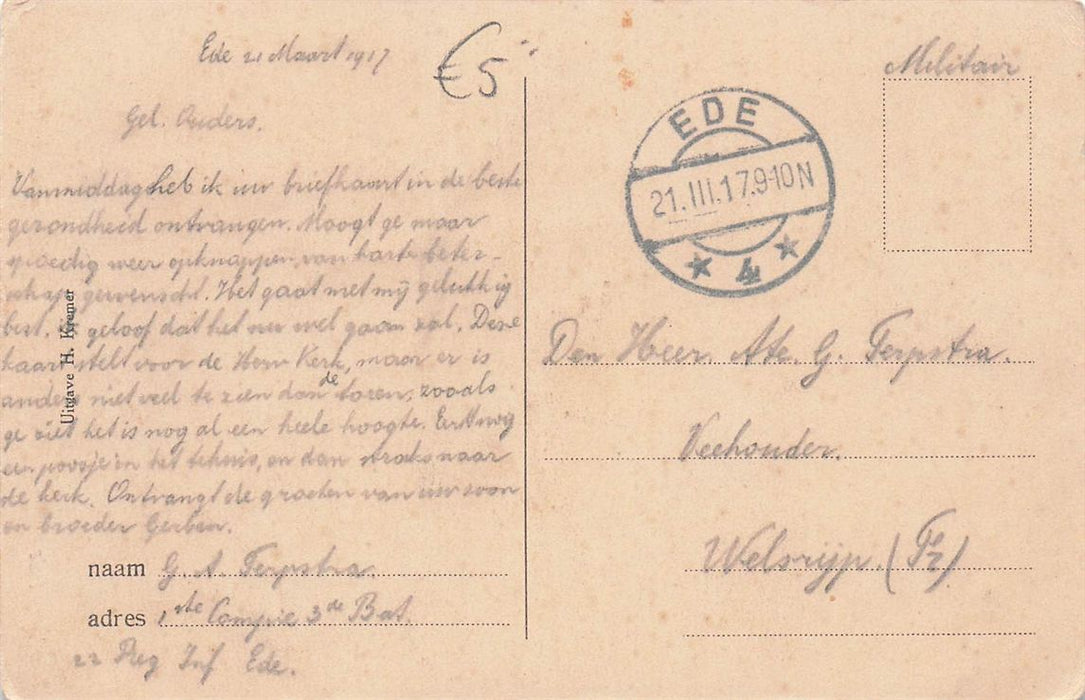 Ede 21 Maart 1917
€5
Gel. Ouders.
Vanmiddag heb ik uw briefkaart in de beste
gezondheid ontvangen. Moogt ge maar
spoedig weer opknappen, van harte beter-
schap gewenscht. Het gaat met mij gelukkig
best. Ik geloof dat het nu wel gaan zal. Deze
kaart stelt voor de Herv Kerk, maar er is
anders niet veel te zien dan de toren, zooals
ge ziet het is nog al een heele hoogte. Eerst nog
een poosje in het tehuis, en dan straks naar
de kerk. Ontvangt de groeten van uw zoon
en broeder Gerben.
naam G. A. Terpstra.
adres 1ste Compie 3de Bat.
22 Reg Inf Ede.
Uitgave H. Kremer
EDE
21.III.17.9-10N
4
Militair
Den Heer Ate. G. Terpstra.
Veehouder.
Welsrijp. (Fr)